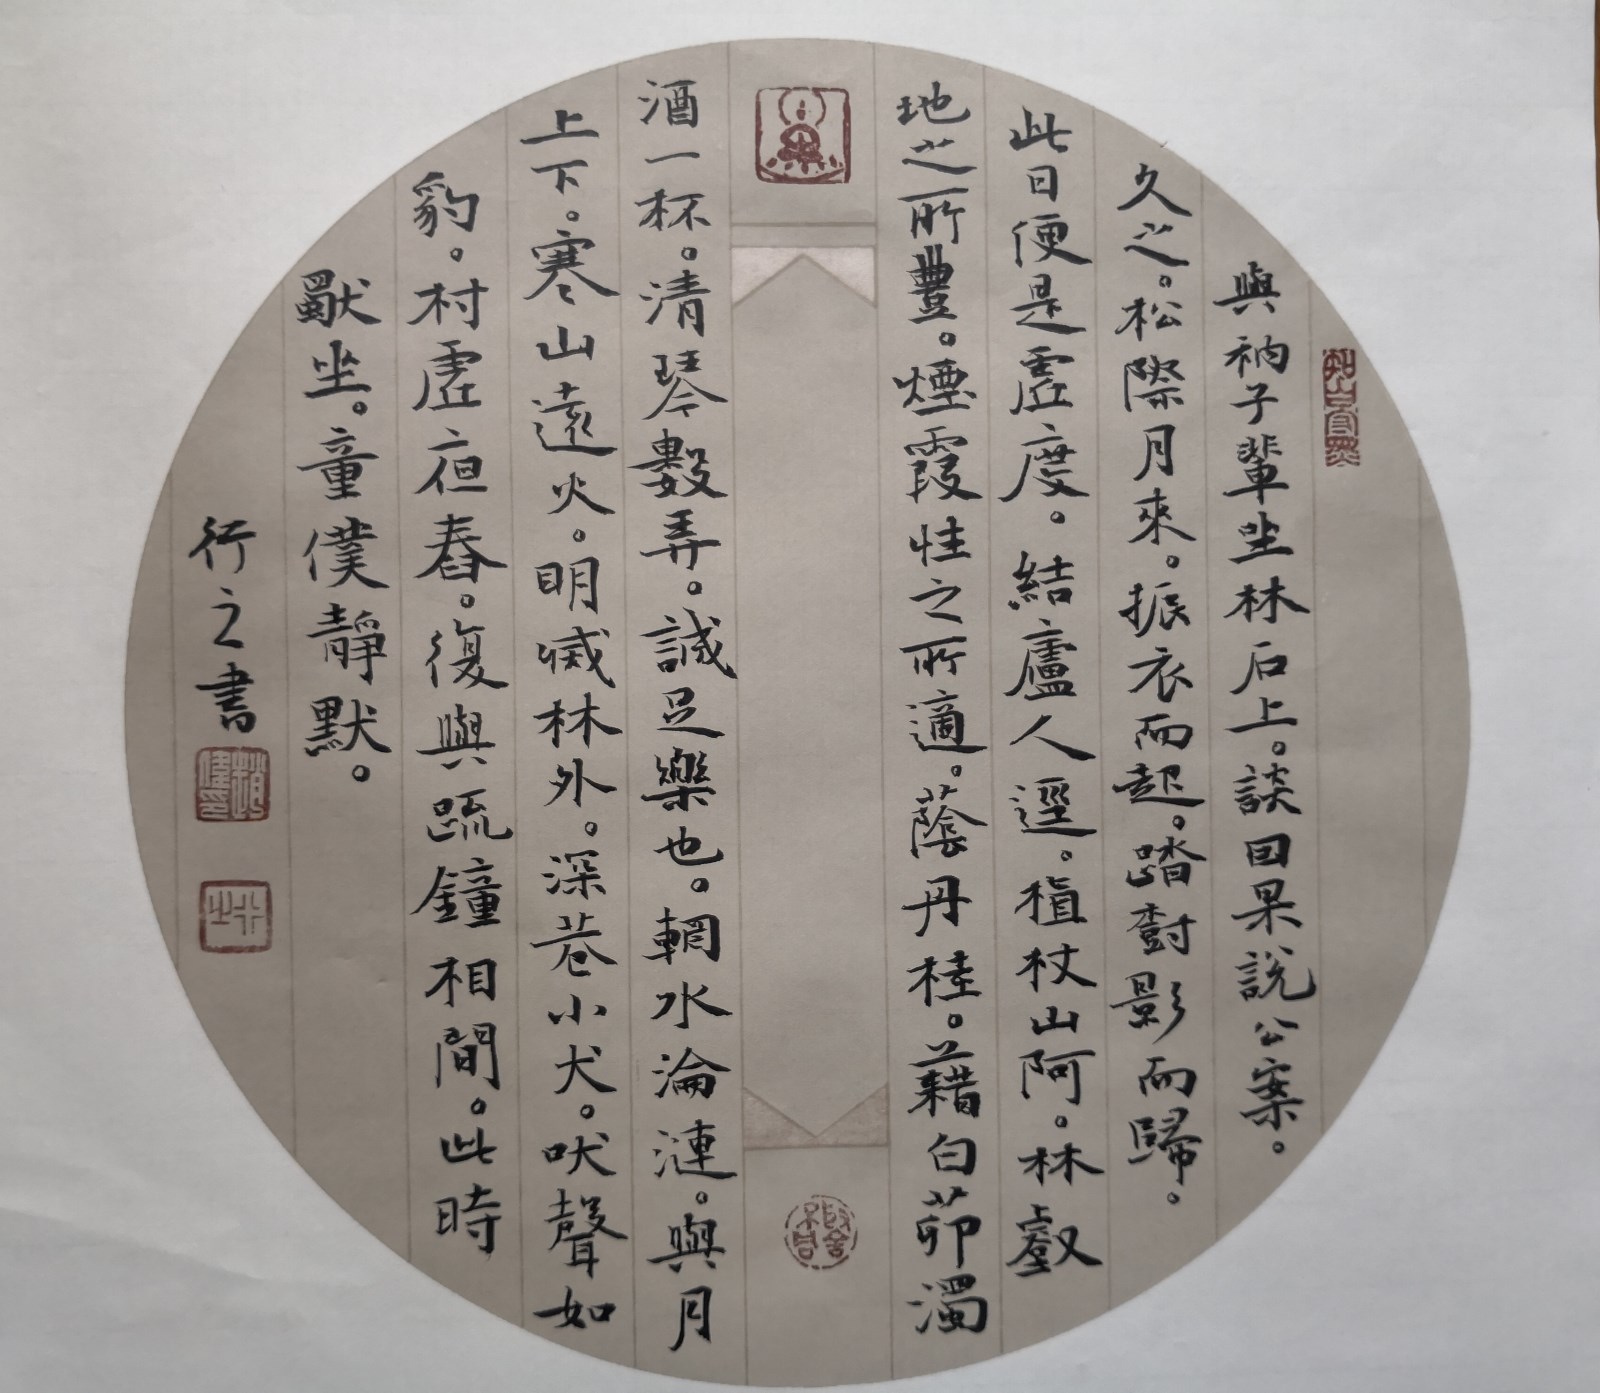 與衲子輩坐林石上。談因果說公案。
久之。松際月來。振衣而起。踏樹影而歸。
此日便是虛度。結廬人逕。植杖山阿。林壑
地之所豐。煙霞性之所適。蔭丹桂。藉白茆濁
酒一杯。清琴數弄。誠足樂也。輞水淪漣。與月
上下。寒山遠火。明滅林外。深巷小犬。吠聲如
豹。村虛夜舂。復與疏鐘相間。此時
獨坐。童僕靜默。
行之書